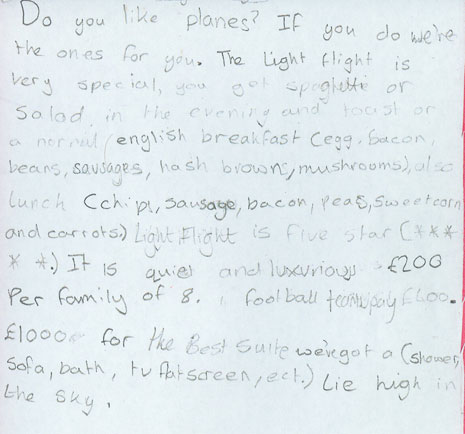 Do you like planes? If you do we're
the ones for you. The Light flight is
very special, you get spaghettie or
Salad in the evening and toast or
a normal english breakfast (egg, bacon,
beans, sausages, hash browns, mushrooms), also
lunch (chips, sausage, bacon, peas, sweetcorn
and carrots.) Light Flight is five star (***
* *.) It is quiet and luxurious £200
Per family of 8. football team pay £400.
£1000 for the Best Suite we've got a (shower,
Sofa, bath, tv flat screen, ect.) Lie high in
the sky.